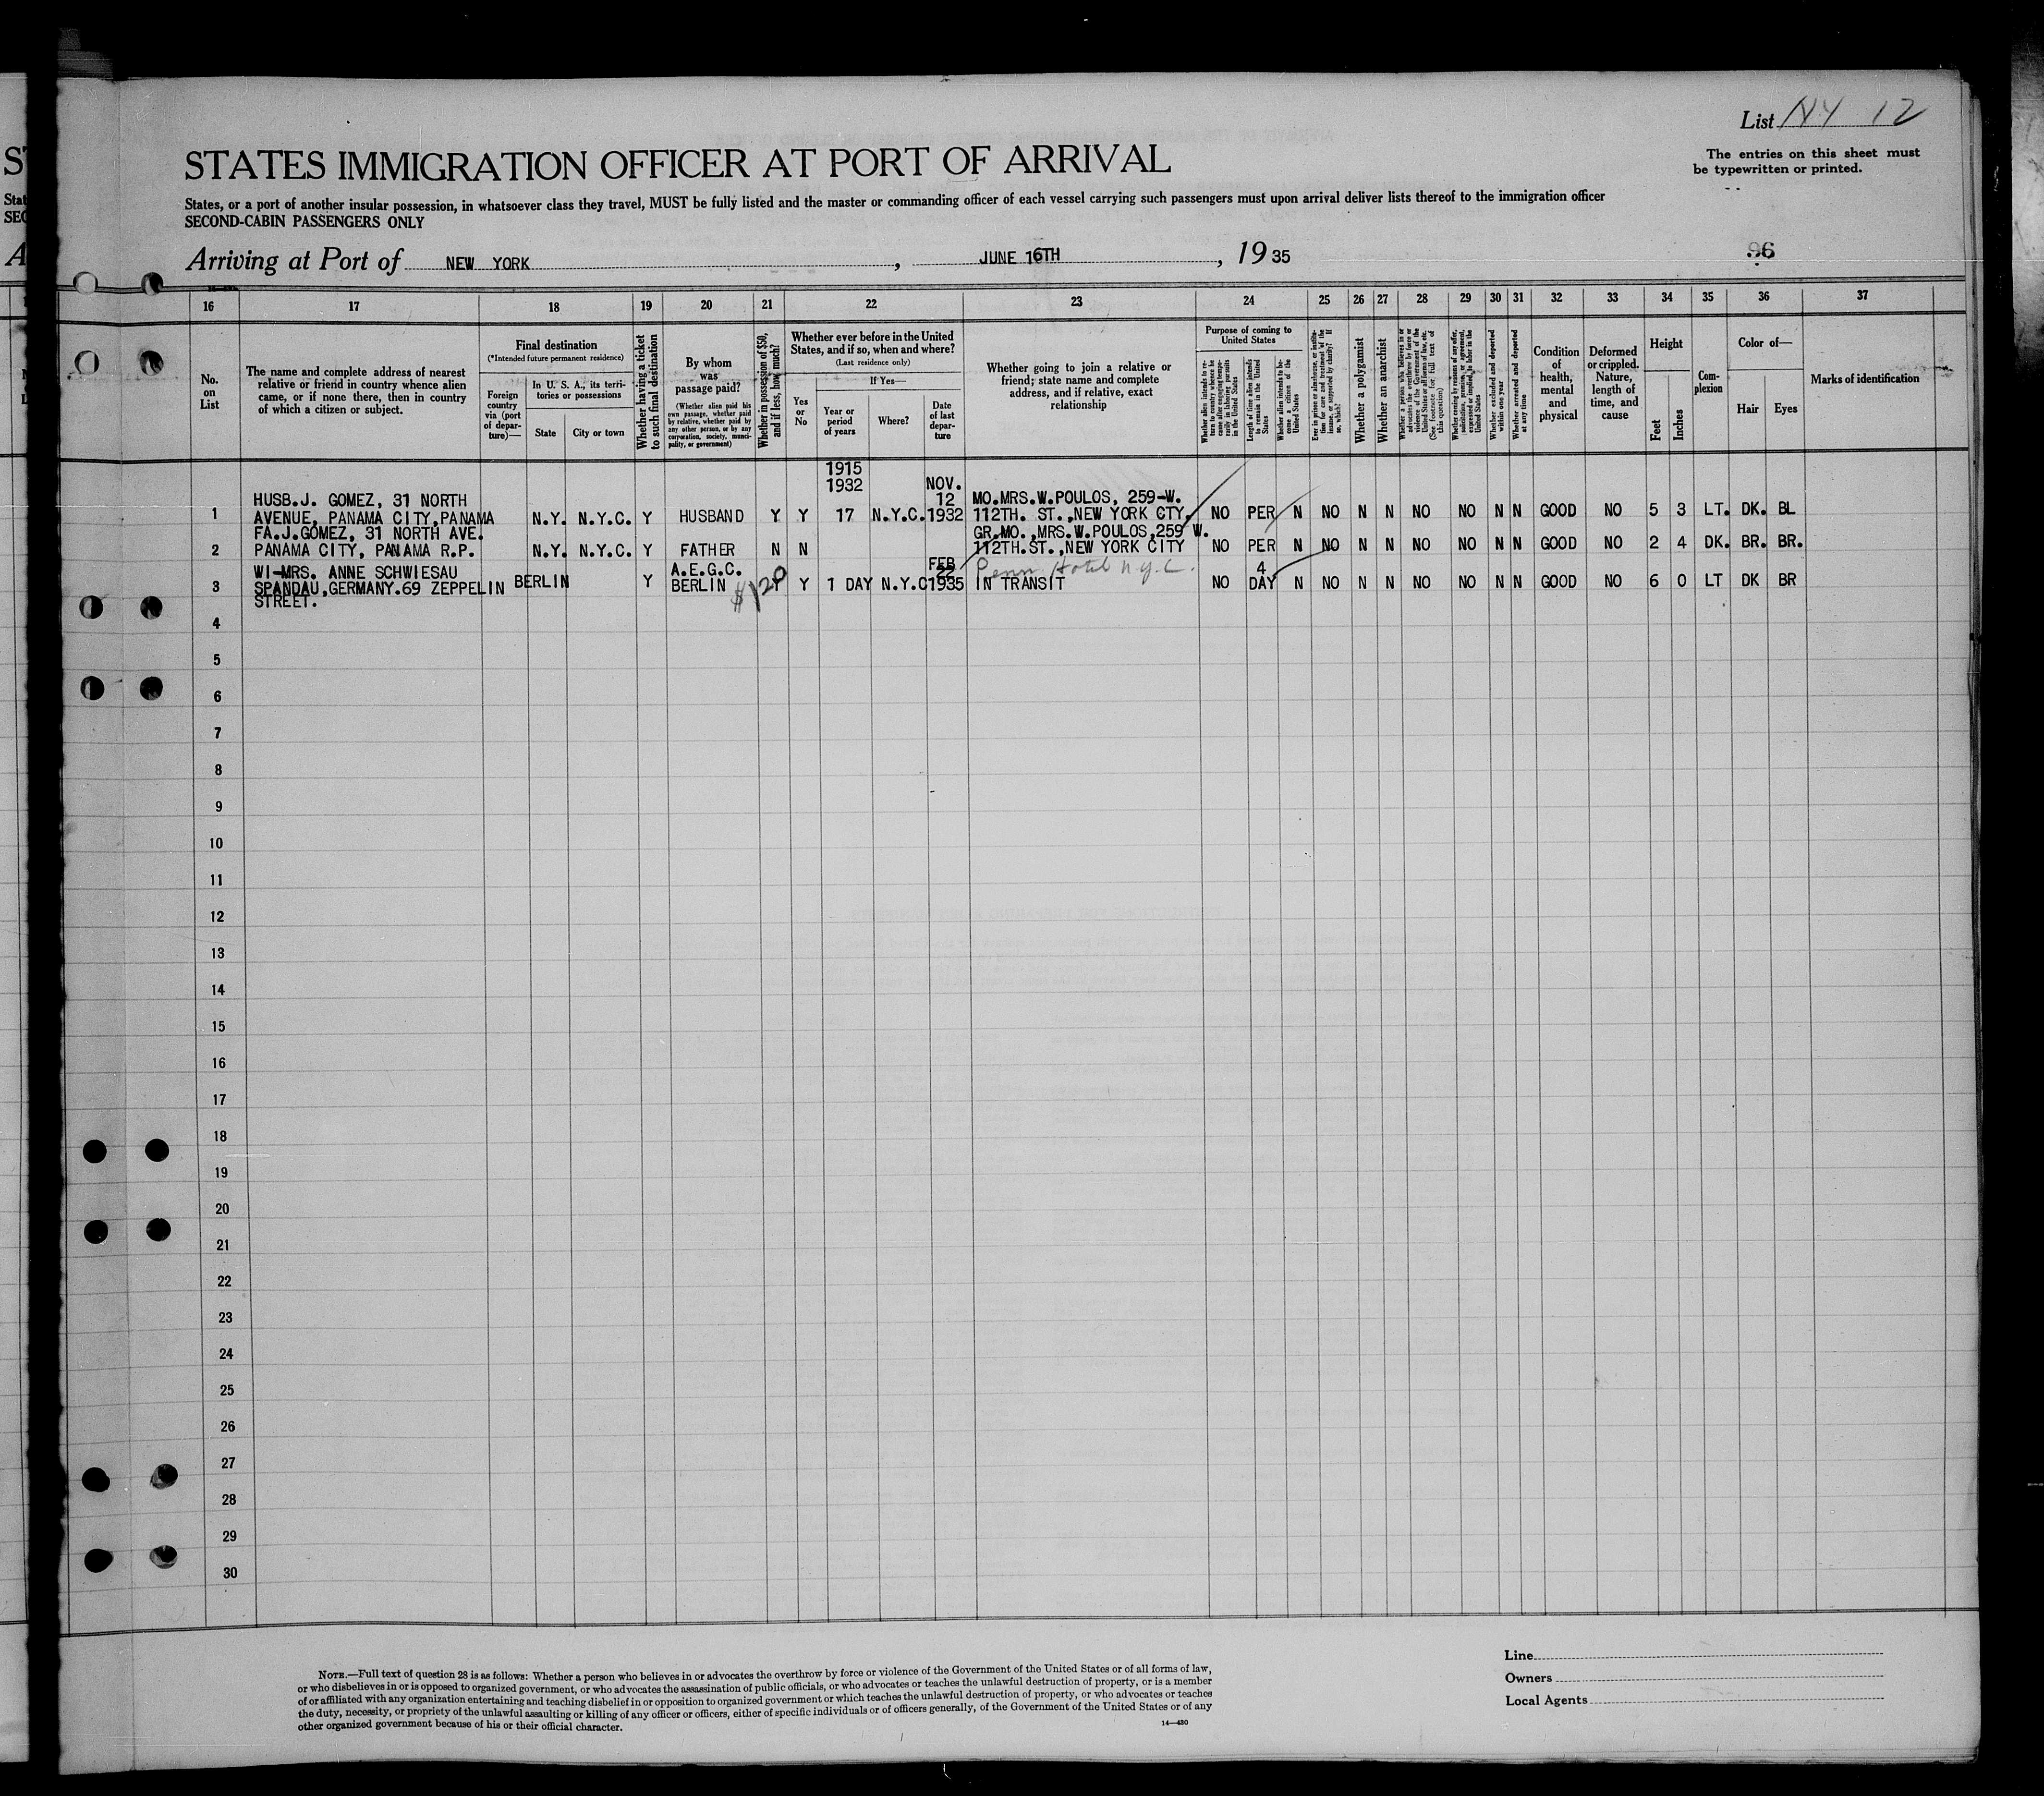 List NY 12
The entries on this sheet must
be typewritten or printed.
STATES IMMIGRATION OFFICER AT PORT OF ARRIVAL
States, or a port of another insular possession, in whatsoever class they travel, MUST be fully listed and the master or commanding officer of each vessel carrying such passengers must upon arrival deliver lists thereof to the immigration officer
SECOND-CABIN PASSENGERS ONLY
Arriving at Port of NEW YORK, JUNE 16TH, 1935
96
16 17 18 19 20 21 22 23 24 25 26 27 28 29 30 31 32 33 34 35 36 37
No.
on
List
The name and complete address of nearest
relative or friend in country whence alien
came, or if none there, then in country
of which a citizen or subject.
Final destination
(*Intended future permanent residence)
Foreign
country
via (port
of depar-
ture)—
In U. S. A., its terri-
tories or possessions
State
City or town
Whether having a ticket
to such final destination
By whom
was
passage paid?
(Whether alien paid his
own passage, whether paid
by relative, whether paid by
any other person, or by any
corporation, society, munici-
pality, or government)
Whether in possession of $50,
and if less, how much?
Whether ever before in the United
States, and if so, when and where?
(Last residence only)
Yes
or
No
If Yes—
Year or
period
of years
Where?
Date
of last
depar-
ture
Whether going to join a relative or
friend; state name and complete
address, and if relative, exact
relationship
Purpose of coming to
United States
Whether alien intends to re-
turn to country whence he
came after engaging tempo-
rarily in laboring pursuits
in the United States
Length of time alien intends
to remain in the United
States
Whether alien intends to be-
come a citizen of the
United States
Ever in prison or almshouse, or institu-
tion for care and treatment of the
insane, or supported by charity? If
so, which?
Whether a polygamist
Whether an anarchist
Whether a person who believes in or
advocates the overthrow by force or
violence of the Government of the
United States or all forms of law, etc.
(See footnote for full text of
this question)
Whether coming by reasons of any offer,
solicitation, promise, or agreement,
expressed or implied, to labor in the
United States
Whether excluded and deported
within one year
Whether arrested and deported
at any time
Condition
of
health,
mental
and
physical
Deformed
or crippled.
Nature,
length of
time, and
cause
Height
Feet
Inches
Com-
plexion
Color of—
Hair
Eyes
Marks of identification
1915
1932 NOV.
HUSB.J. GOMEZ, 31 NORTH 12 MO.MRS.W.POULOS, 259-W.
1 AVENUE, PANAMA CITY,PANAMA N.Y. N.Y.C. Y HUSBAND Y Y 17 N.Y.C. 1932 112TH. ST.,NEW YORK CTY. NO PER N NO N N NO NO N N GOOD NO 5 3 LT. DK. BL
FA.J.GOMEZ, 31 NORTH AVE. GR.MO.,MRS.W.POULOS,259 W.
2 PANAMA CITY, PANAMA R.P. N.Y. N.Y.C. Y FATHER N N 112TH.ST.,NEW YORK CITY NO PER N NO N N NO NO N N GOOD NO 2 4 DK. BR. BR.
WI-MRS. ANNE SCHWIESAU A.E.G.C. FEB 22 Penn Hotel N.Y.C. 4
3 SPANDAU,GERMANY.69 ZEPPELIN BERLIN Y BERLIN $120 Y Y 1 DAY N.Y.C 1935 IN TRANSIT NO DAY N NO N N NO NO N N GOOD NO 6 0 LT DK BR
STREET.
4
5
6
7
8
9
10
11
12
13
14
15
16
17
18
19
20
21
22
23
24
25
26
27
28
29
30
NOTE.—Full text of question 28 is as follows: Whether a person who believes in or advocates the overthrow by force or violence of the Government of the United States or of all forms of law,
or who disbelieves in or is opposed to organized government, or who advocates the assassination of public officials, or who advocates or teaches the unlawful destruction of property, or is a member
of or affiliated with any organization entertaining and teaching disbelief in or opposition to organized government or which teaches the unlawful destruction of property, or who advocates or teaches
the duty, necessity, or propriety of the unlawful assaulting or killing of any officer or officers, either of specific individuals or of officers generally, of the Government of the United States or of any
other organized government because of his or their official character.
14—430
Line
Owners
Local Agents